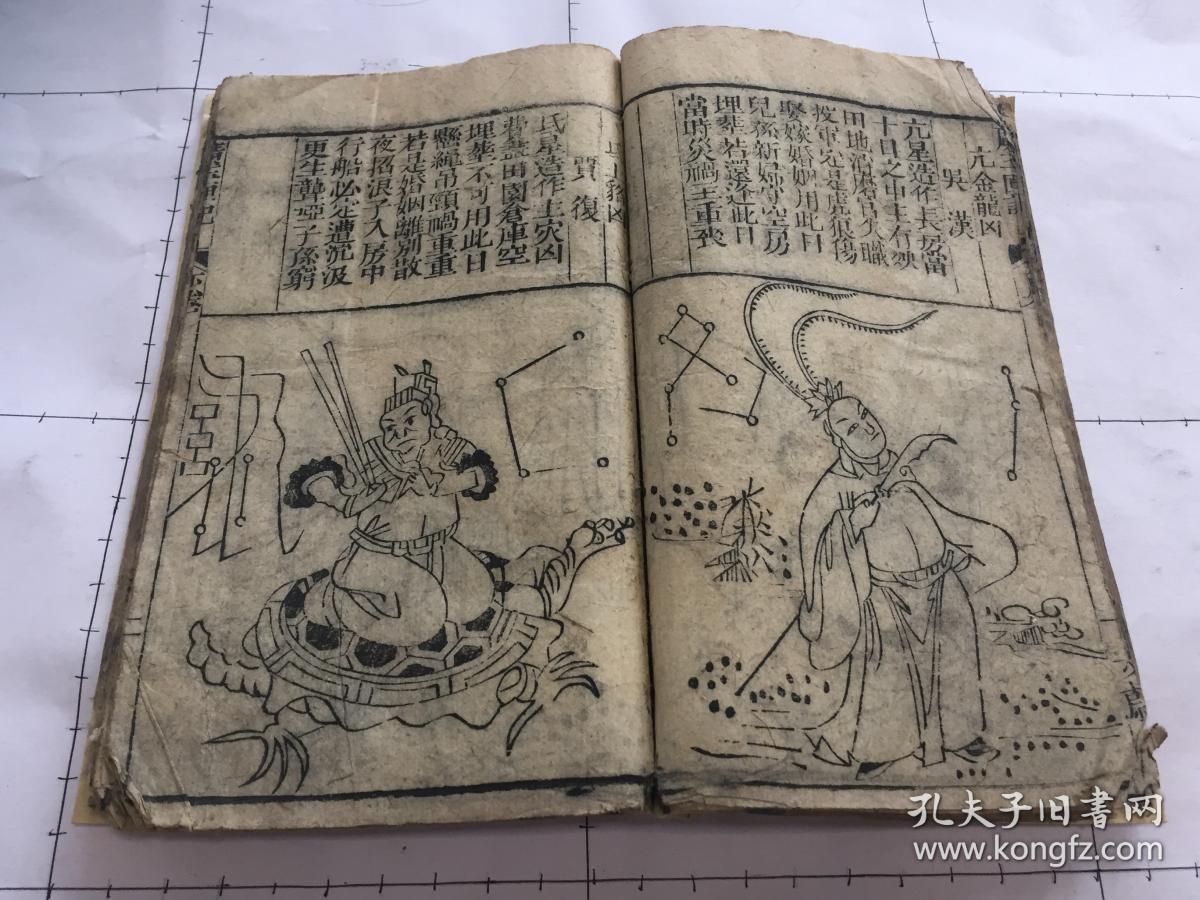 亢金龍凶
吳漢
亢星造作長房當
十日之中主有殃
田地消磨官失職
投軍定是虎狼傷
娶嫁婚姻用此日
兒孫新婦守空房
埋葬若還逢此日
當時災禍主重喪
賈復
氐星造作主灾凶
費盡田園倉庫空
埋葬不可用此日
懸繩吊頸禍重重
若是婚姻離別散
夜招浪子入房中
行船必定遭沉汲
更生聾啞子孫窮
孔夫子旧書网
www.kongfz.com